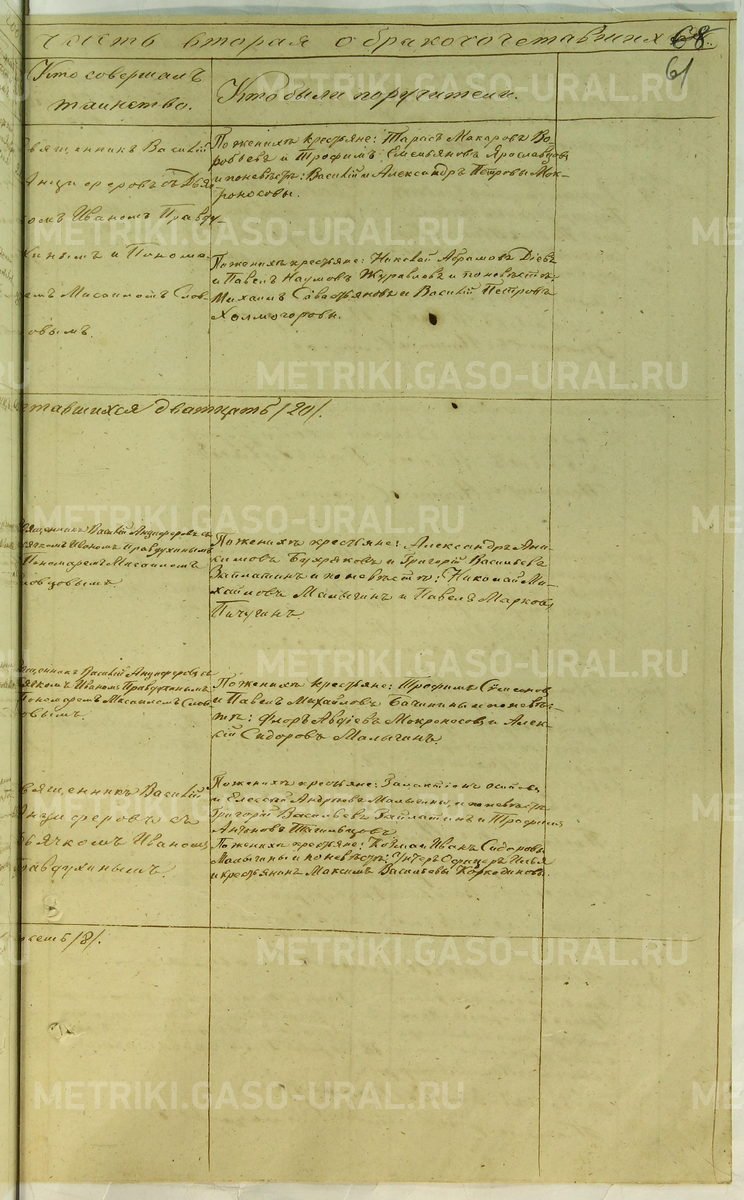 часть вторая о бракосочетавшихся
68.
61
Кто совершалъ
таинство.
Кто были поручители.
Священникъ Василій
Анциферовъ съ Дья
комъ Иваномъ Правду-
хинымъ и Понома
ремъ Масаиломъ Слов
цовымъ.
По женихѣ крестьяне: Тарасъ Макаровъ Во
робьевъ и Трофимъ Емельяновъ Ярославцовъ
и по невѣстѣ: Василій и Александръ Петровы Мок-
роносовы.
По женихѣ крестьяне: Николай Абрамовъ Діевъ
и Павелъ Наумовъ Журавлевъ и по невѣстѣ:
Михаилъ Савастьяновъ и Василій Петровъ
Холмогоровы.
етавшихся дватцать /20/.
Священникъ Василій Анциферовъ съ
дьячкомъ Иваномъ Правдухинымъ
Пономаремъ Масаиломъ
Словцовымъ.
По женихѣ крестьяне: Александръ Яки
мовъ Бухряковъ и Григорій Васильевъ
Зайлатинъ и по невѣстѣ: Николай Ми-
хайловъ Малыгинъ и Павелъ Марковъ
Пичугинъ.
Священникъ Василій Анциферовъ съ
дьячкомъ Иваномъ Правдухинымъ
Пономаремъ Масаиломъ Слов
цовымъ.
По женихѣ крестьяне: Трофимъ Семеновъ
и Павелъ Михайловъ Бачинины и по невѣс
тѣ: Флоръ Авдіевъ Мокроносовъ и Алек
сій Сидоровъ Малыгинъ.
Священникъ Василій
Анциферовъ съ
дьячкомъ Иваномъ
Правдухинымъ.
По женихѣ крестьяне: Галактіонъ Осиповъ
и Елессей Андреевъ Малыгины, и по невѣстѣ
Григорій Васильевъ Зайлатинъ и Трофимъ
Антоновъ
По женихѣ крестьяне: Козма и Иванъ Сидоровы
Малыгины и по невѣстѣ: Унтеръ Офицеръ Илья
и крестьянинъ Максимъ Васильевы Коркодиновы.
/8/.
METRIKI.GASO-URAL.RU